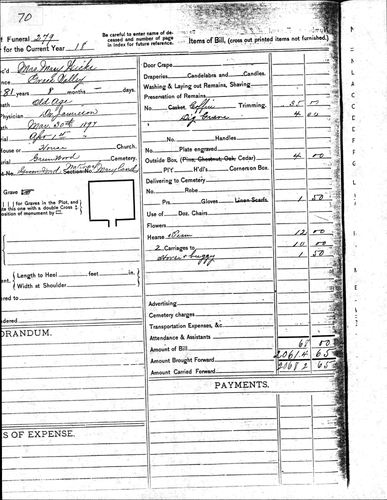 70
t Funeral 279
for the Current Year 18
Be careful to enter name of de-
cessed and number of page
in index for future reference.
Items of Bill, (cross out printed items not furnished.)
Mrs. Mary
81 years 8 months - days.
Old Age
Physician Dr. Jameison
Mar 30th 1897
Apr 1st
House or Home Church.
Greenwood Cemetery.
Section No. Maryland
Grave
for Graves in the Plot, and
te this one with a double Cross
osition of monument by
Length to Heel feet in.
Width at Shoulder
ered to
dered
ORANDUM.
S OF EXPENSE.
Door Crape
Draperies Candelabra and Candles.
Washing & Laying out Remains, Shaving
Preservation of Remains
No. Casket, Coffin Trimming, 35 00
Dig Grave 4 00
No. Handles
Plate engraved
Outside Box, (Pine, Chestnut, Oak, Cedar) 4 00
P'l'y H'd'ls Corners on Box.
Delivering to Cemetery
No. Robe
Prs. Gloves Linen Scarfs. 1 50
Use of Doz. Chairs
Flowers
Hearse 12 00
2 Carriages to 10 00
Horse & buggy 1 50
Advertising
Cemetery charges
Transportation Expenses, &c.
Attendance & Assistants
Amount of Bill 68 00
Amount Brought Forward 20614 65
Amount Carried Forward 20682 65
PAYMENTS.